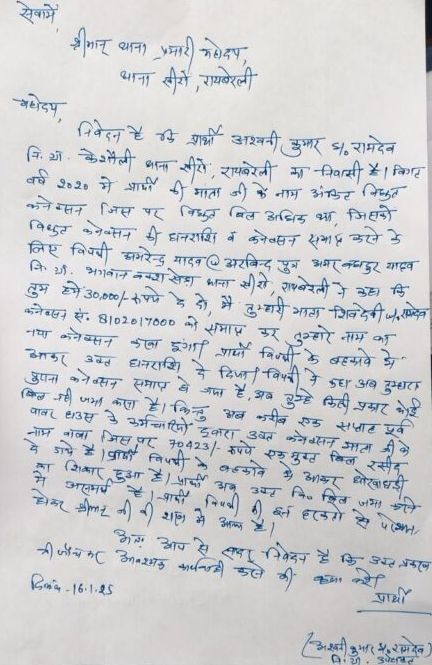 सेवामें,
श्रीमान् थाना प्रभारी महोदय,
थाना खीरों, रायबरेली
महोदय,
निवेदन है कि प्रार्थी अश्वनी कुमार S/o रामदेव
नि. ग्रा. केशौली थाना खीरों, रायबरेली का निवासी है। विगत
वर्ष 2020 में प्रार्थी की माता जी के नाम अंकित विद्युत
कनेक्सन जिस पर विद्युत बिल अधिक था, जिसको
विद्युत कनेक्सन की धनराशि व कनेक्सन समाप्त करने के
लिए विपक्षी अमरेन्द्र यादव @ अरविन्द पुत्र अमर बहादुर यादव
नि. ग्रा. भगवान बक्श खेड़ा थाना खीरों, रायबरेली ने कहा कि
तुम हमें 30,000/- रूपये दे दो, मैं तुम्हारी माता शिवदेवी w/o रामदेव
कनेक्सन सं. 8102017000 को समाप्त कर तुम्हारे नाम का
नया कनेक्सन करा दूंगा। प्रार्थी विपक्षी के बहकावे में
आकर उक्त धनराशि दे दिया। विपक्षी ने कहा अब तुम्हारा
पुराना कनेक्सन समाप्त हो गया है, अब तुम्हें किसी प्रकार कोई
बिल नहीं जमा करना है। किन्तु अब करीब एक सप्ताह पूर्व
पावर हाउस के कर्मचारियों द्वारा उक्त कनेक्सन माता जी के
नाम वाला जिस पर 70423/- रूपये एक मुश्त बिल रसीद
दे गये है। प्रार्थी विपक्षी के बहकावे में आकर धोखाधड़ी
का शिकार हुआ है। प्रार्थी अब उक्त वि. बिल जमा करने
में असमर्थ है। प्रार्थी विपक्षी की इस हरकतों से परेशान
होकर श्रीमान् जी की शरण में आया है।
अतः आप से सादर निवेदन है कि उक्त प्रकरण
की जाँच कर आवश्यक कार्यवाही करने की कृपा करें।
दिनांक - 16.1.25
प्रार्थी
(अश्वनी कुमार S/o रामदेव)
नि. ग्रा. उपरोक्त